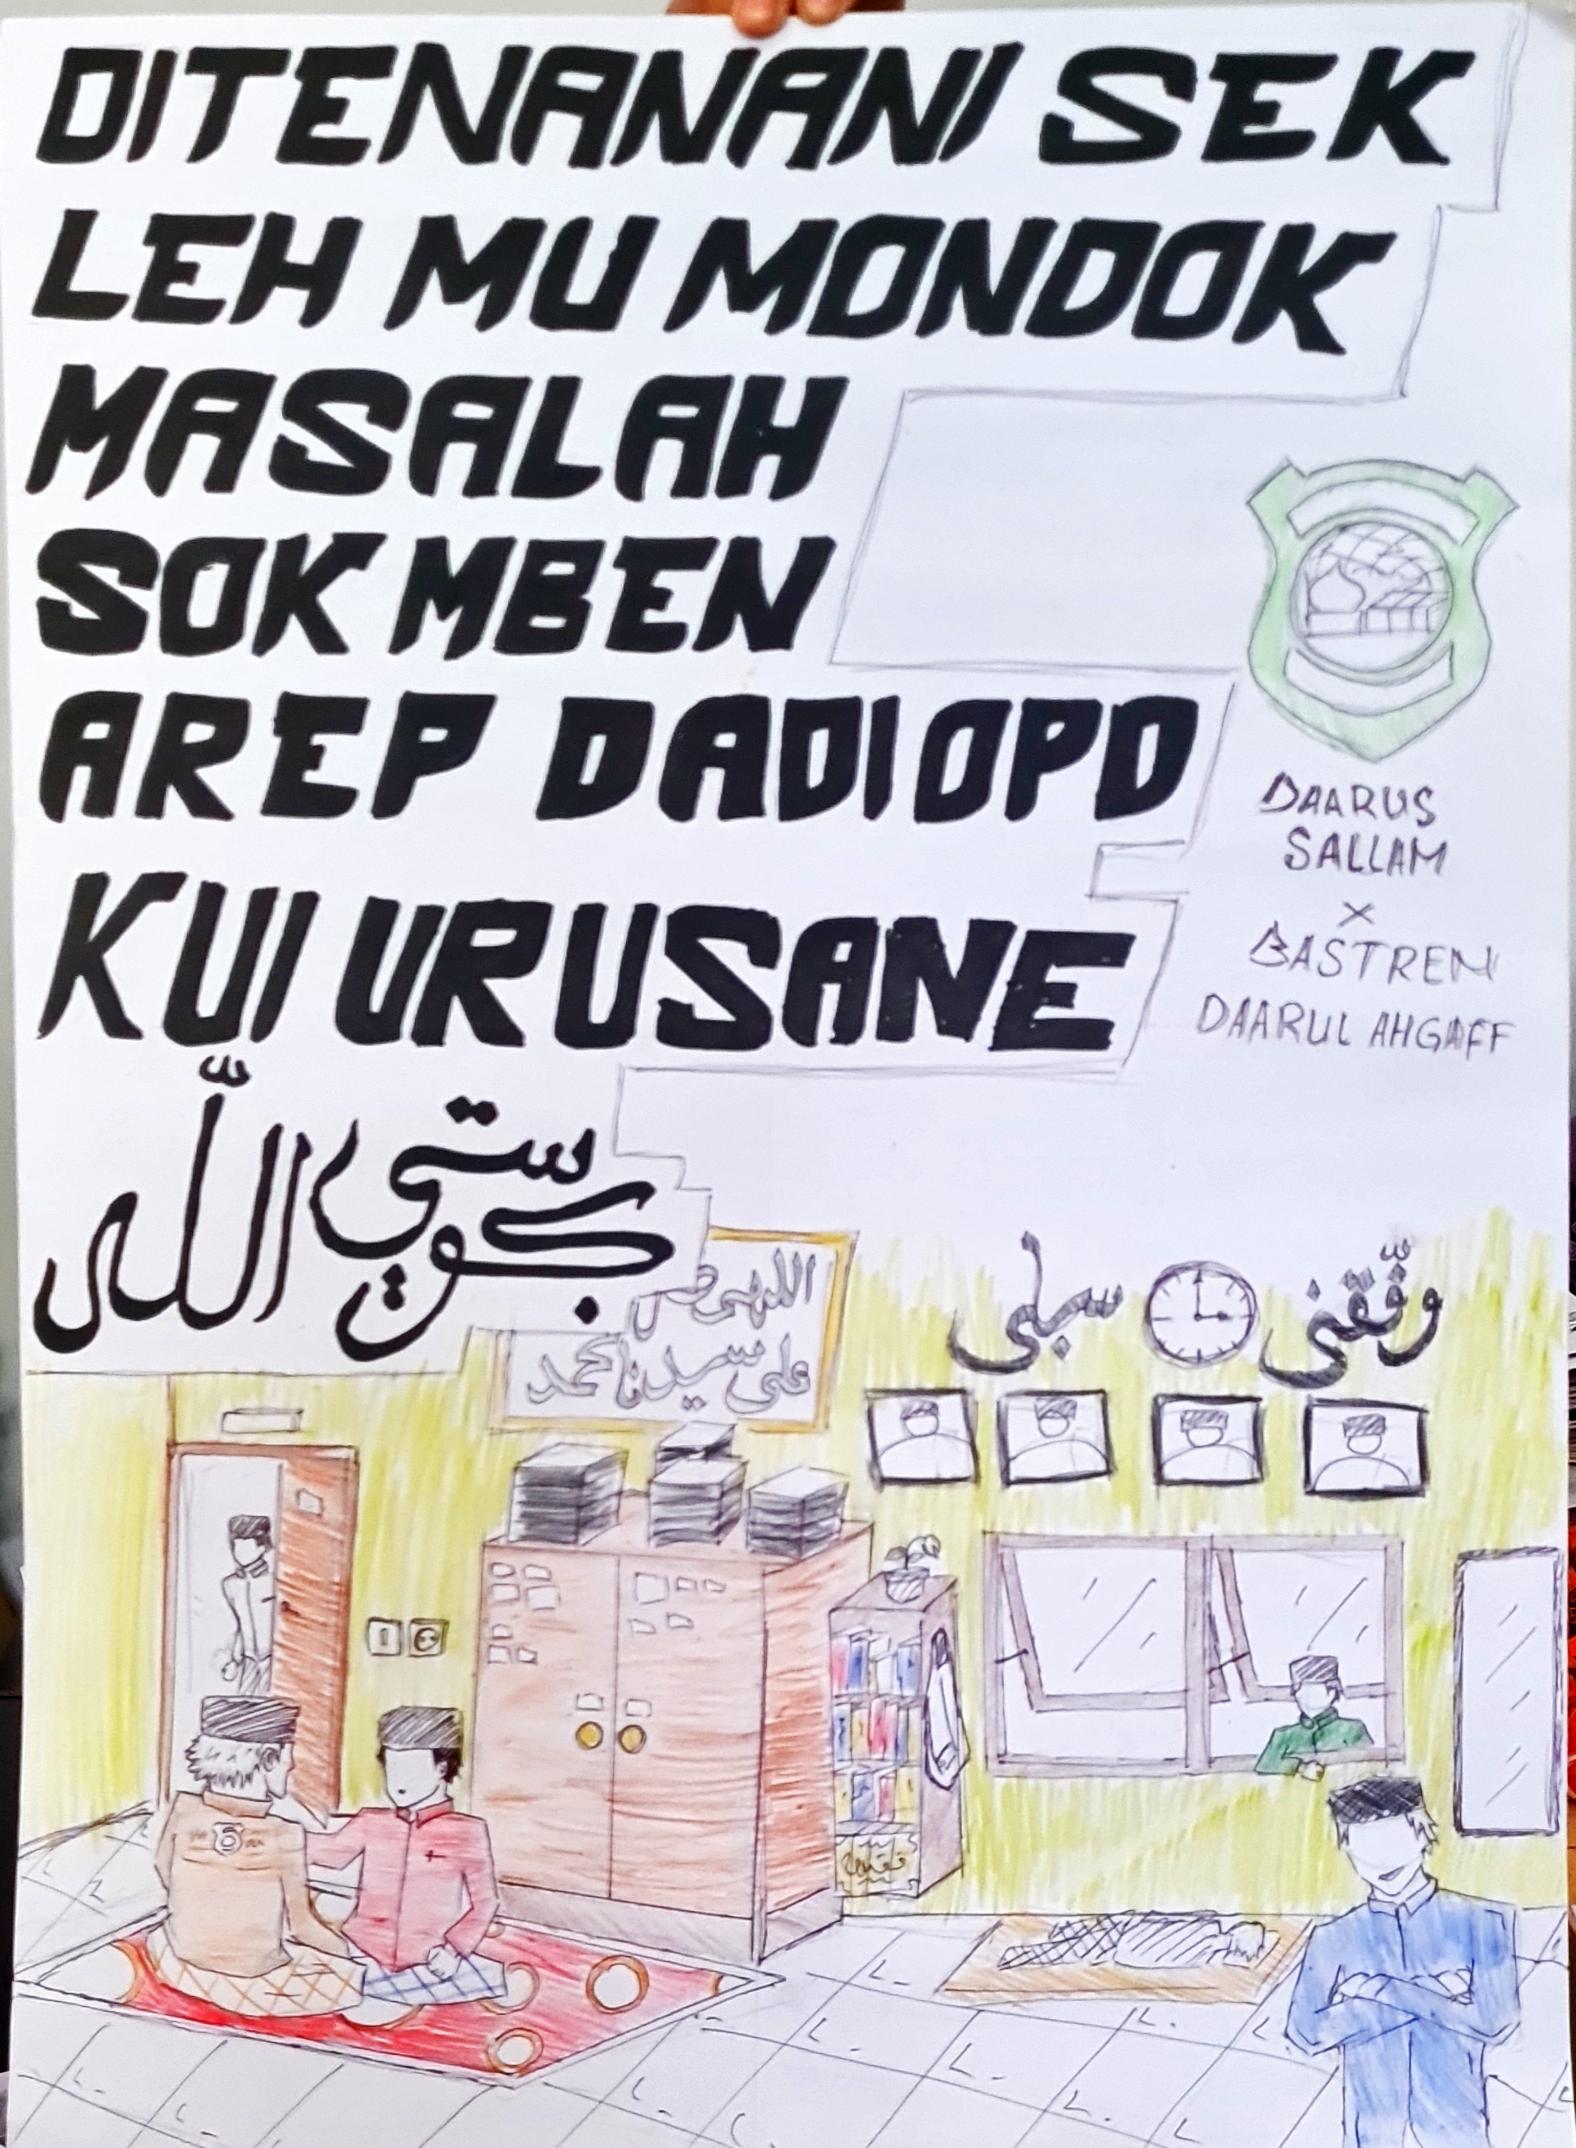 DITENANANI SEK
LEH MU MONDOK
MASALAH
SOK MBEN
AREP DADI OPO
KUI URUSANE
ڮوستي اللّٰه
DAARUS
SALLAM
X
BASTREN
DAARUL AHGAFF
اللهم صل
على سيدنا محمد
وفّقني سبلي